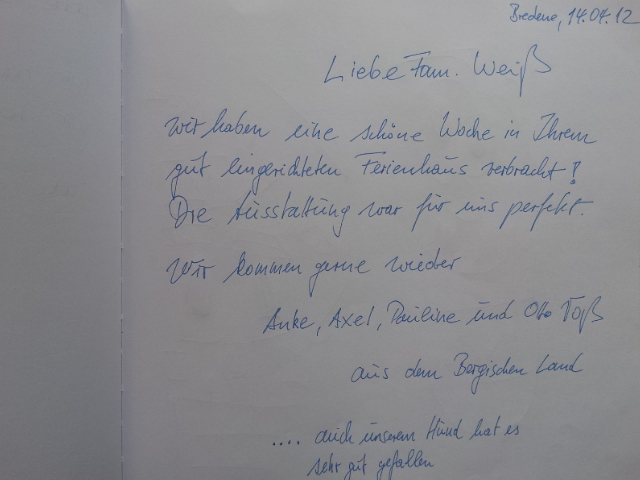 Bredene, 14.04.12
Liebe Fam. Weiß
wir haben eine schöne Woche in Ihrem
gut eingerichteten Ferienhaus verbracht!
Die Ausstattung war für uns perfekt.
Wir kommen gerne wieder
Anke, Axel, Pauline und Otto Voß
aus dem Bergischen Land
.... auch unserem Hund hat es
sehr gut gefallen